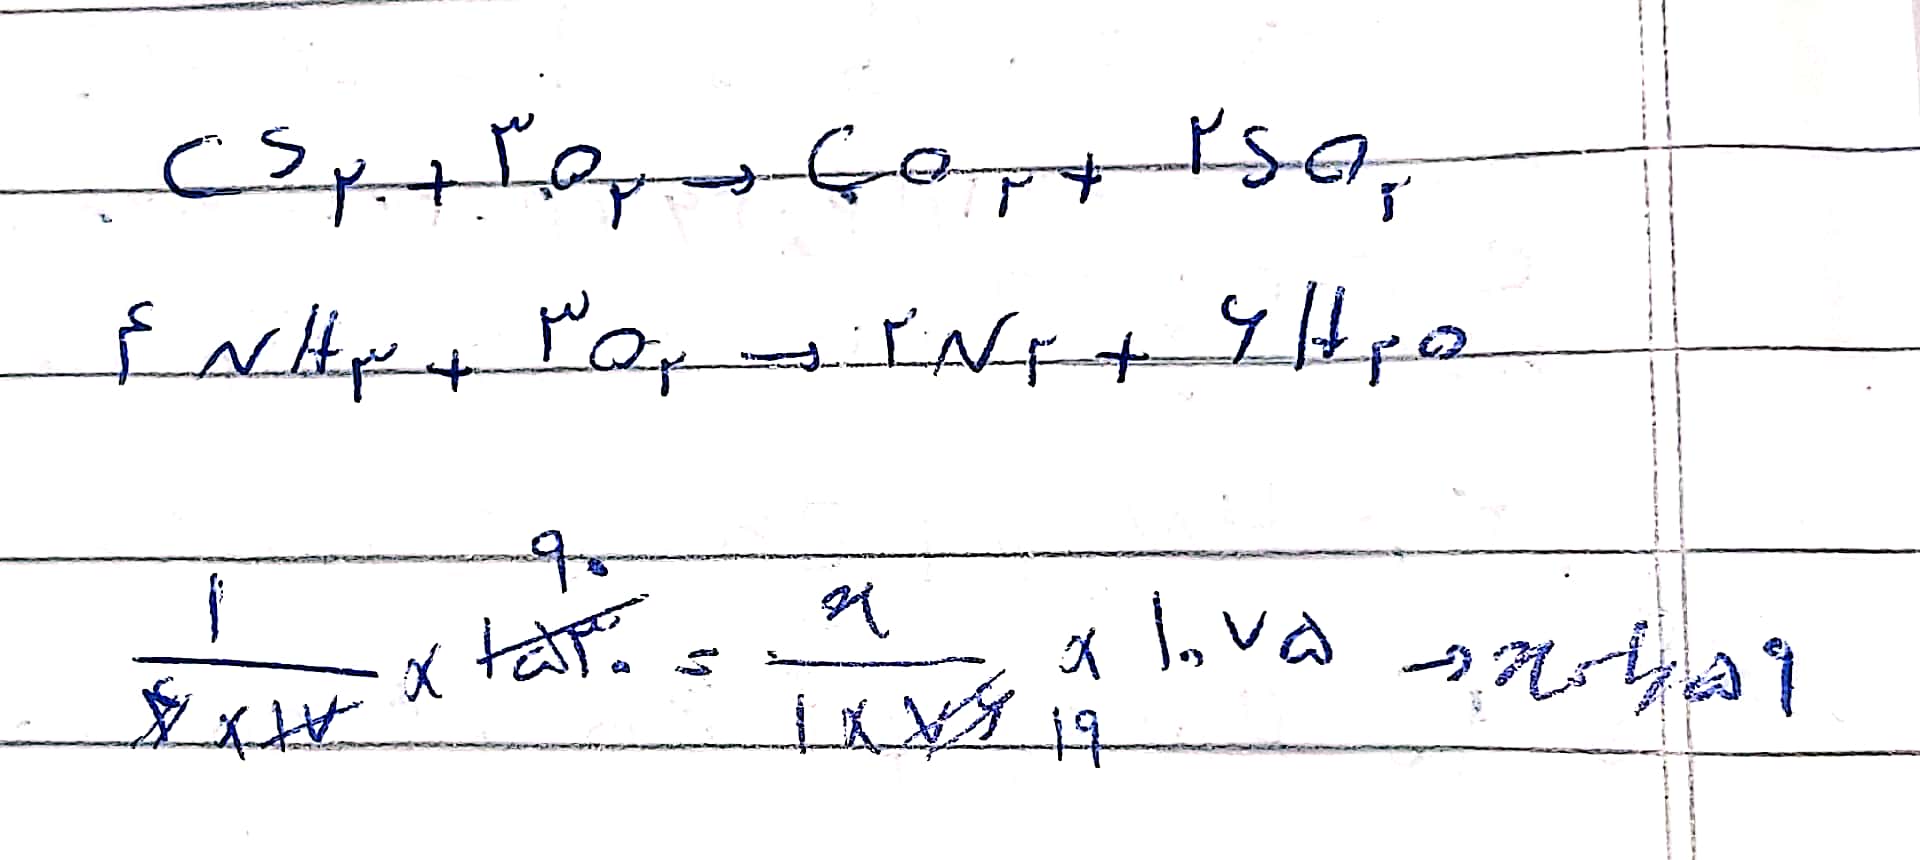 CS۲ + ۳O۲ → CO۲ + ۲SO۲
۴NH۳ + ۳O۲ → ۲N۲ + ۶H۲O
۹۰
۱ / ۴×۱۷ × ۱۵۳۰ = x / ۱×۷۶ × ۱۰۷۵ → x = ۱٫۵۹
۱۹